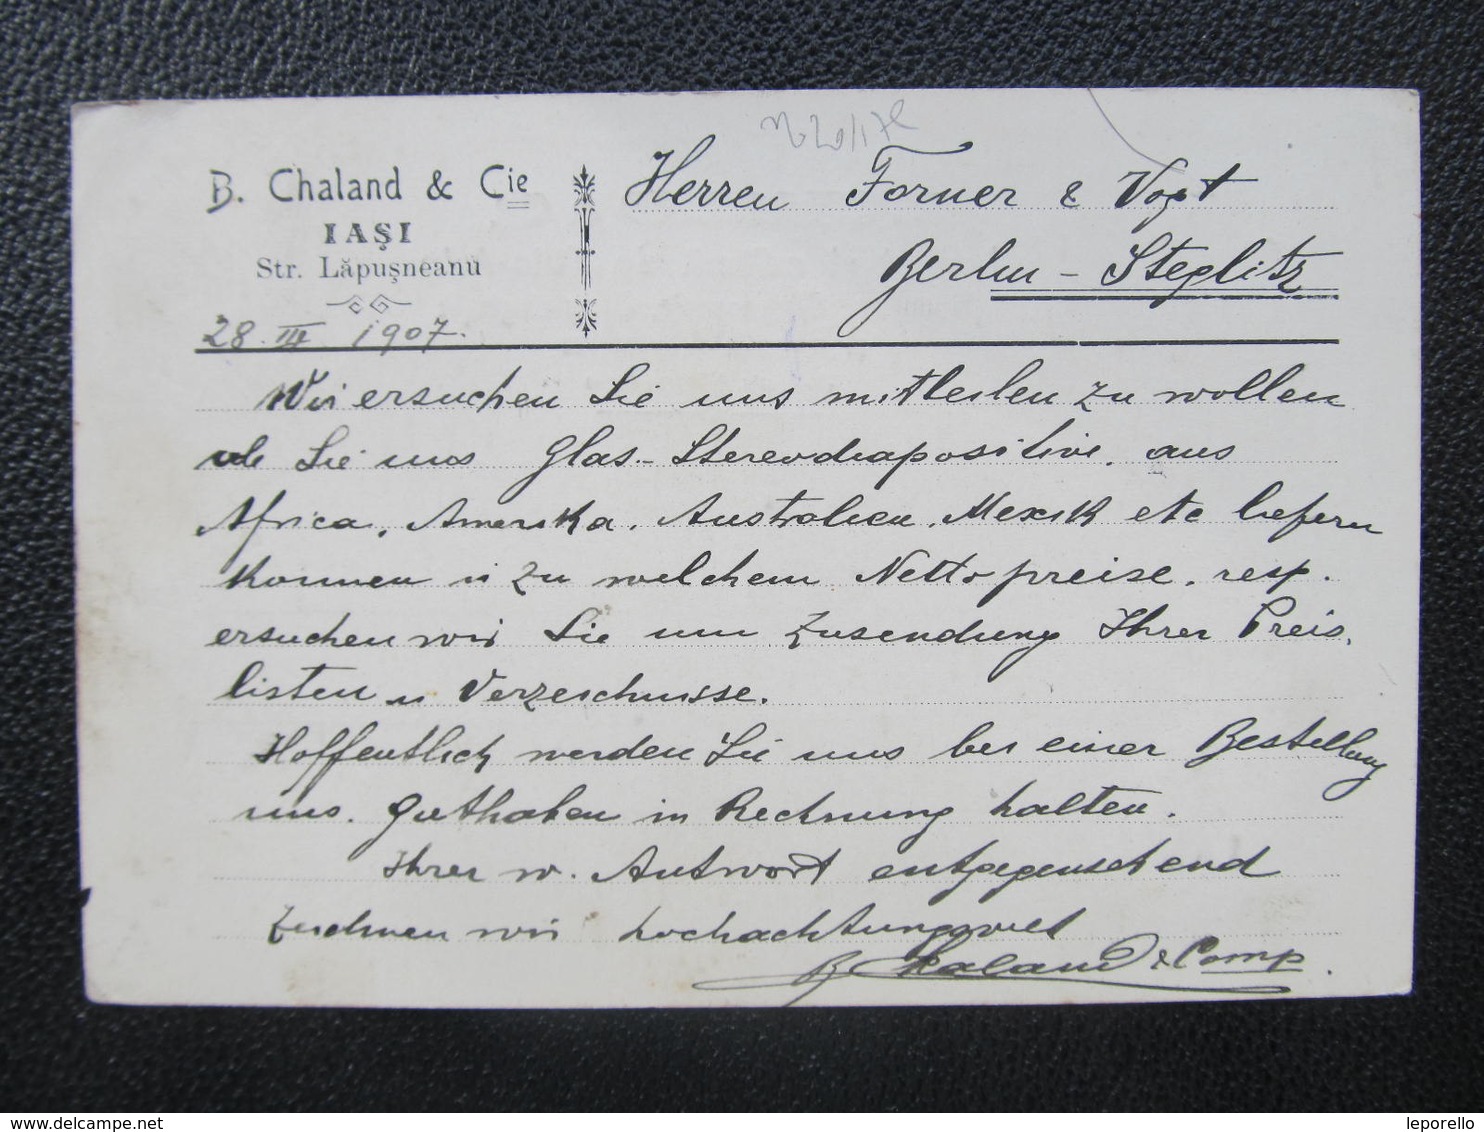 B. Chaland & Cie
IAŞI
Str. Lăpuşneanu
28. III 1907.
Herren Forner & Vogt
Berlin - Steglitz
Wir ersuchen Sie uns mitteilen zu wollen
ob Sie uns Glas-Stereodiapositive. aus
Africa, Amerika. Australien. Mexik etc liefern
konnen u zu welchem Nettopreise. resp.
ersuchen wir Sie um Zusendung Ihrer Preis-
listen u Verzeichnisse.
Hoffentlich werden Sie uns bei einer Bestellung
uns. Guthaben in Rechnung halten.
Ihrer w. Antwort entgegensehend
zeichnen wir hochachtungsvoll
B Chaland & Comp.
www.delcampe.net
leporello